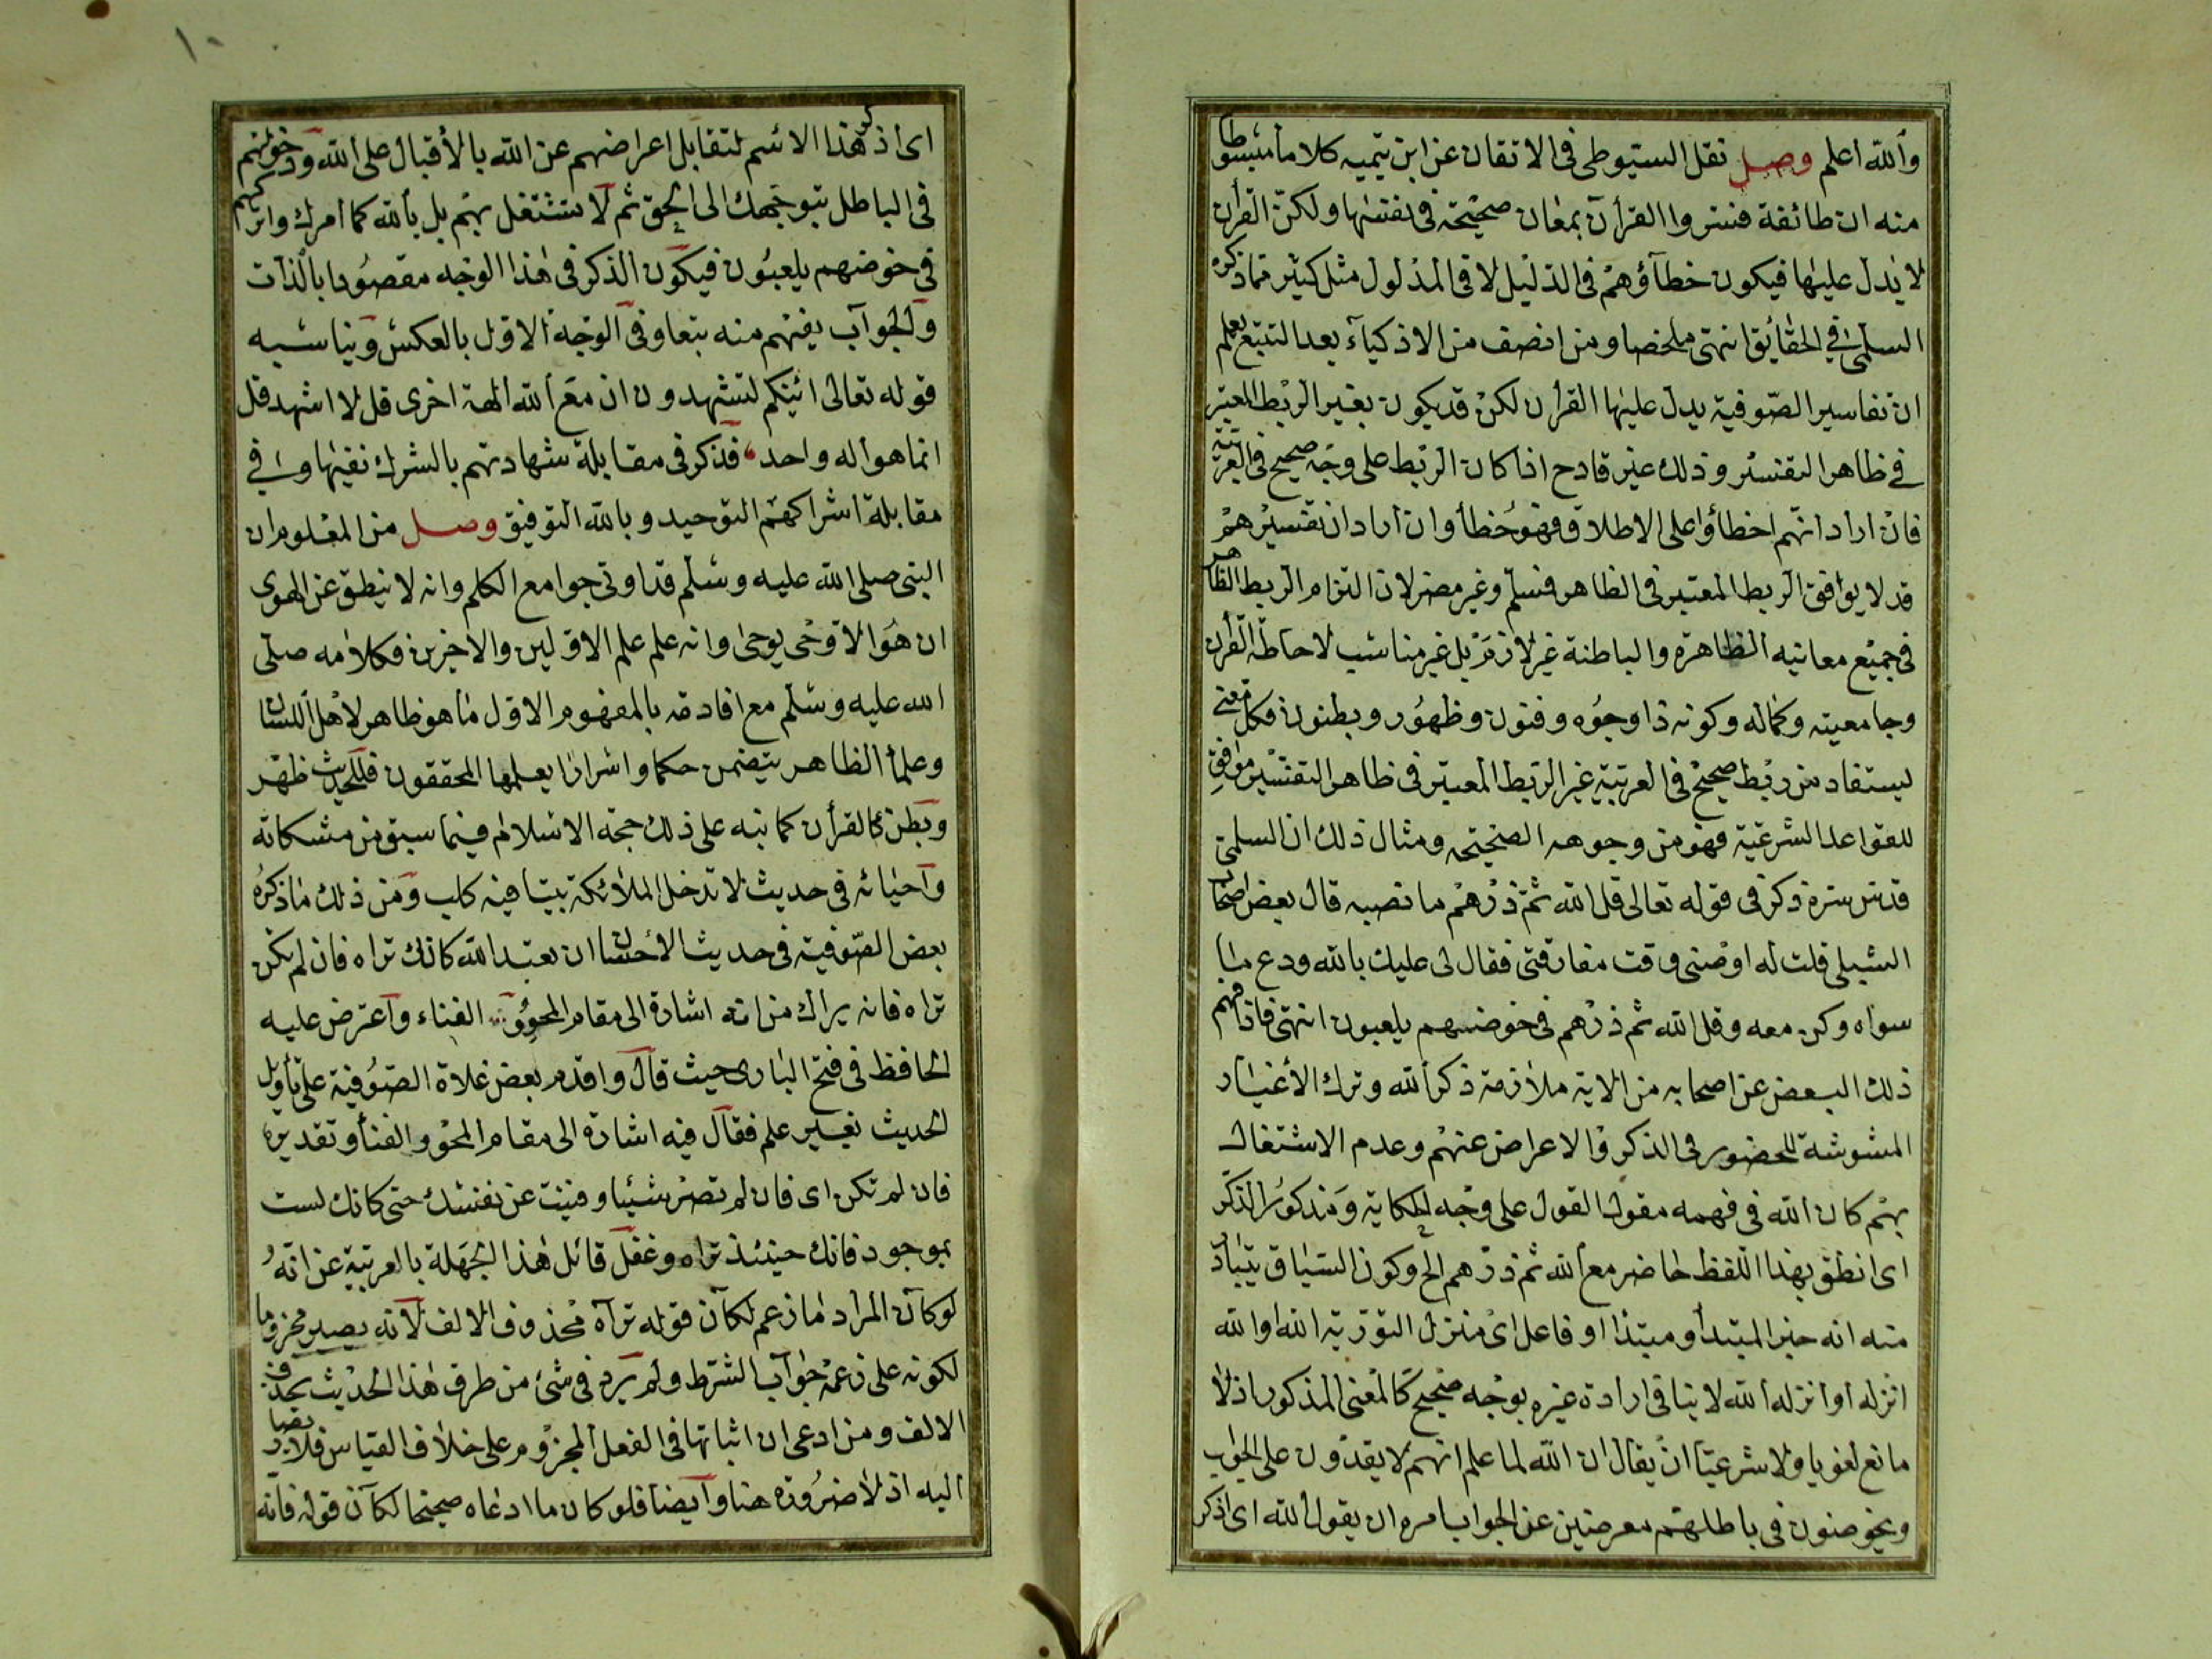 والله اعلم وصل نقل السيوطي في الاتقان عن ابن تيميه كلاما مبسوطا
منه ان طائفة فسروا القرآن بمعان صحيحة في نفسها ولكن القرآن
لا يدل عليها فيكون خطآؤهم في الدليل لا في المدلول مثل كثير مما ذكره
السلمي في الحقائق انتهى ملخصا ومن انصف من الاذكياء بعد التتبع يعلم
ان تفاسير الصوفية يدل عليها القرأن لكن قد يكون بغير الربط المعتبر
في ظاهر التفسير وذلك غير قادح اذا كان الربط على وجه صحيح في العربية
فان اراد انهم اخطأوا على الاطلاق فهو خطأ وان اراد ان تفسيرهم
قد لا يوافق الربط المعتبر في الظاهر فمسلم وغير مضر لان التزام الربط الظاهر
في جميع معانيه الظاهرة والباطنة غير لازم بل غير مناسب لاحاطة القرأن
وجامعيته وكماله وكونه ذا وجوه وفنون وظهور وبطون فكل معنى
يستفاد من ربط صحيح في العربية غير الربط المعتبر في ظاهر التفسير موافق
للقواعد الشرعية فهو من وجوهه الصحيحة ومثال ذلك ان السلمي
قدس سره ذكر في قوله تعالى قل الله ثم ذرهم ما نصه قال بعض اصحاب
الشبلي قلت له اوصني وقت مفارقتي فقال لي عليك بالله ودع ما
سواه وكن معه وقل الله ثم ذرهم في خوضهم يلعبون انتهى فاذا فهم
ذلك البعض عن اصحابه من الاية ملازمة ذكر الله وترك الأغيار
المشوشة للحضور في الذكر والاعراض عنهم وعدم الاشتغال
بهم كان الله في فهمه مقول القول على وجه الحكاية ومذكور الذكر
اى انطق بهذا اللفظ حاضر مع الله ثم ذرهم الخ وكون السياق يتبادر
منه انه خبر المبتدأ ومبتدا او فاعل اى منزل التورية الله او الله
انزله او انزله الله لا ينافي ارادة غيره بوجه صحيح كالمعنى المذكور اذ لا
مانع لغويا ولا شرعيا ان يقال ان الله لما علم انهم لا يقدرون على الجواب
ويخوضون في باطلهم معرضين عن الجواب امره ان يقول الله اى اذكر
اى اذكر هذا الاسم لتقابل اعراضهم عن الله بالأقبال على الله وخوضهم
في الباطل بتوجهك الى الحق ثم لا تشتغل بهم بل بالله كما امرك واتركهم
في خوضهم يلعبون فيكون الذكر في هذا الوجه مقصودا بالذات
والجواب يفهم منه تبعا وفي الوجه الاول بالعكس ويناسبه
قوله تعالى ائنكم لتشهدون ان مع الله الهة اخرى قل لا اشهد قل
انما هو اله واحد فذكر في مقابلة شهادتهم بالشرك نفيها وفي
مقابلة اشراكهم التوحيد وبالله التوفيق وصل من المعلوم ان
النبي صلى الله عليه وسلم قد اوتي جوامع الكلم وانه لا ينطق عن الهوى
ان هو الا وحي يوحى وانه علم علم الاولين والاخرين فكلامه صلى
الله عليه وسلم مع افادته بالمفهوم الاول ما هو ظاهر لاهل اللسان
وعلمأ الظاهر يتضمن حكما واسرارا يعلمها المحققون فللحديث ظهر
وبطن كالقرأن كما نبه على ذلك حجة الاسلام فيما سبق من مشكاته
وأحيائه في حديث لا تدخل الملائكة بيتا فيه كلب ومن ذلك ما ذكره
بعض الصوفية في حديث الأحسان ان تعبد الله كانك تراه فان لم تكن
تراه فانه يراك من انه اشارة الى مقام المحو والفناء وأعترض عليه
الحافظ في فتح البارى حيث قال واقدم بعض غلاة الصوفية على تأويل
الحديث بغير علم فقال فيه اشارة الى مقام المحو والفنأ وتقديره
فان لم تكن اى فان لم تصر شيئا وفنيت عن نفسك حتى كانك لست
بموجود فانك حينئذ تراه وغفل قائل هذا للجهلة بالعربية عن انه
لو كان المراد ما زعم لكان قوله تراه محذوف الالف لانه يصير مجزوما
لكونه على زعمه جواب الشرط ولم يرد في شئ من طرق هذا الحديث بحذف
الالف ومن ادعى ان اثباتها في الفعل المجزوم على خلاف القياس فلا يصار
اليه اذ لا ضرورة هنا وأيضا فلو كان ما ادعاه صحيحا لكان قوله فانه